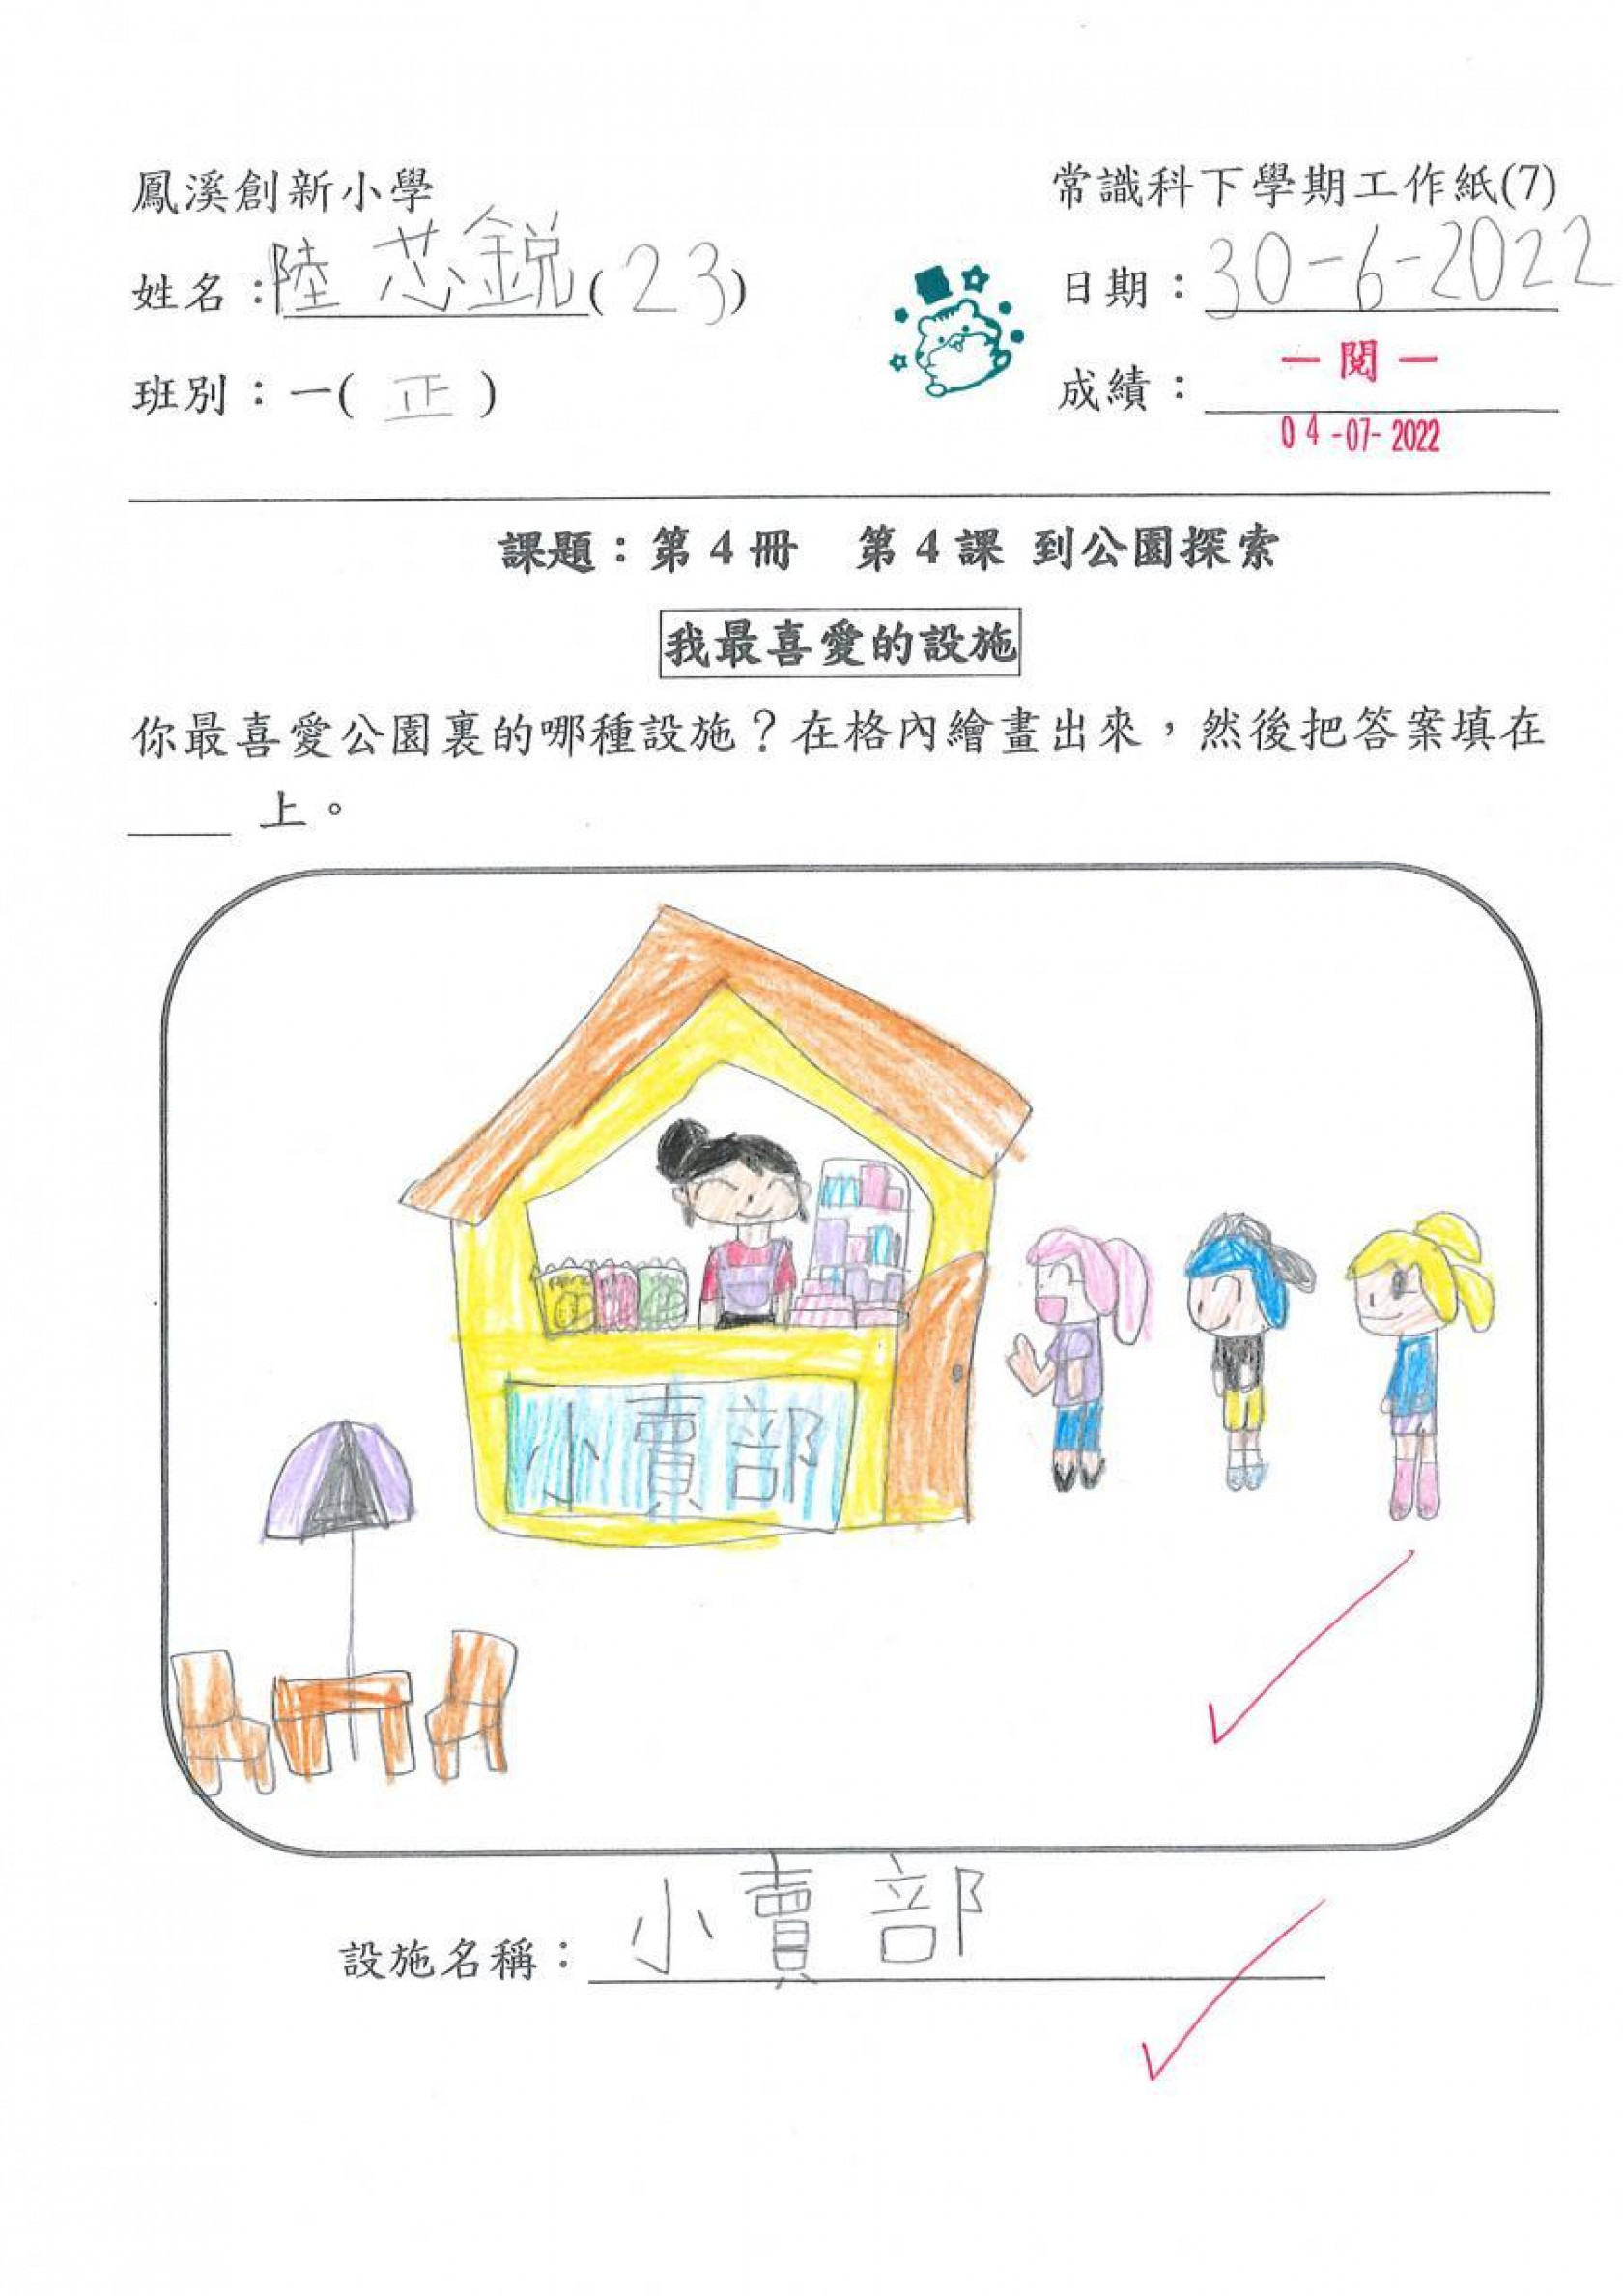 鳳溪創新小學
常識科下學期工作紙(7)
姓名：陸芯鋭(23)
日期：30-6-2022
班別：一(正)
成績：
一閱一
04-07-2022
課題：第4冊 第4課 到公園探索
我最喜愛的設施
你最喜愛公園裏的哪種設施？在格內繪畫出來，然後把答案填在
____ 上。
小賣部
設施名稱：小賣部